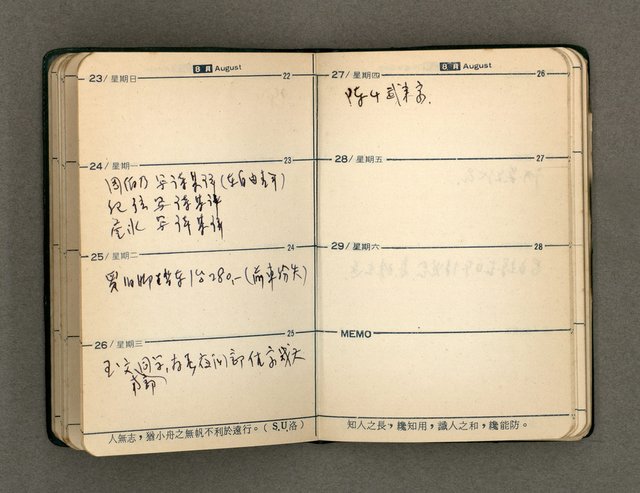 8 月 August
23/星期日
22
24/星期一
23
周伯乃 写詩集評(在自由青年)
紀弦 写詩集評
星氷 写詩集評
25/星期二
24
買旧脚踏車1台280,-(前車紛失)
26/星期三
25
玉文同学,
人無志,猶小舟之無帆不利於遠行。(S.U.洛)
8 月 August
27/星期四
26
陳千武来家.
28/星期五
27
29/星期六
28
MEMO
知人之長,纔知用,識人之和,纔能防。